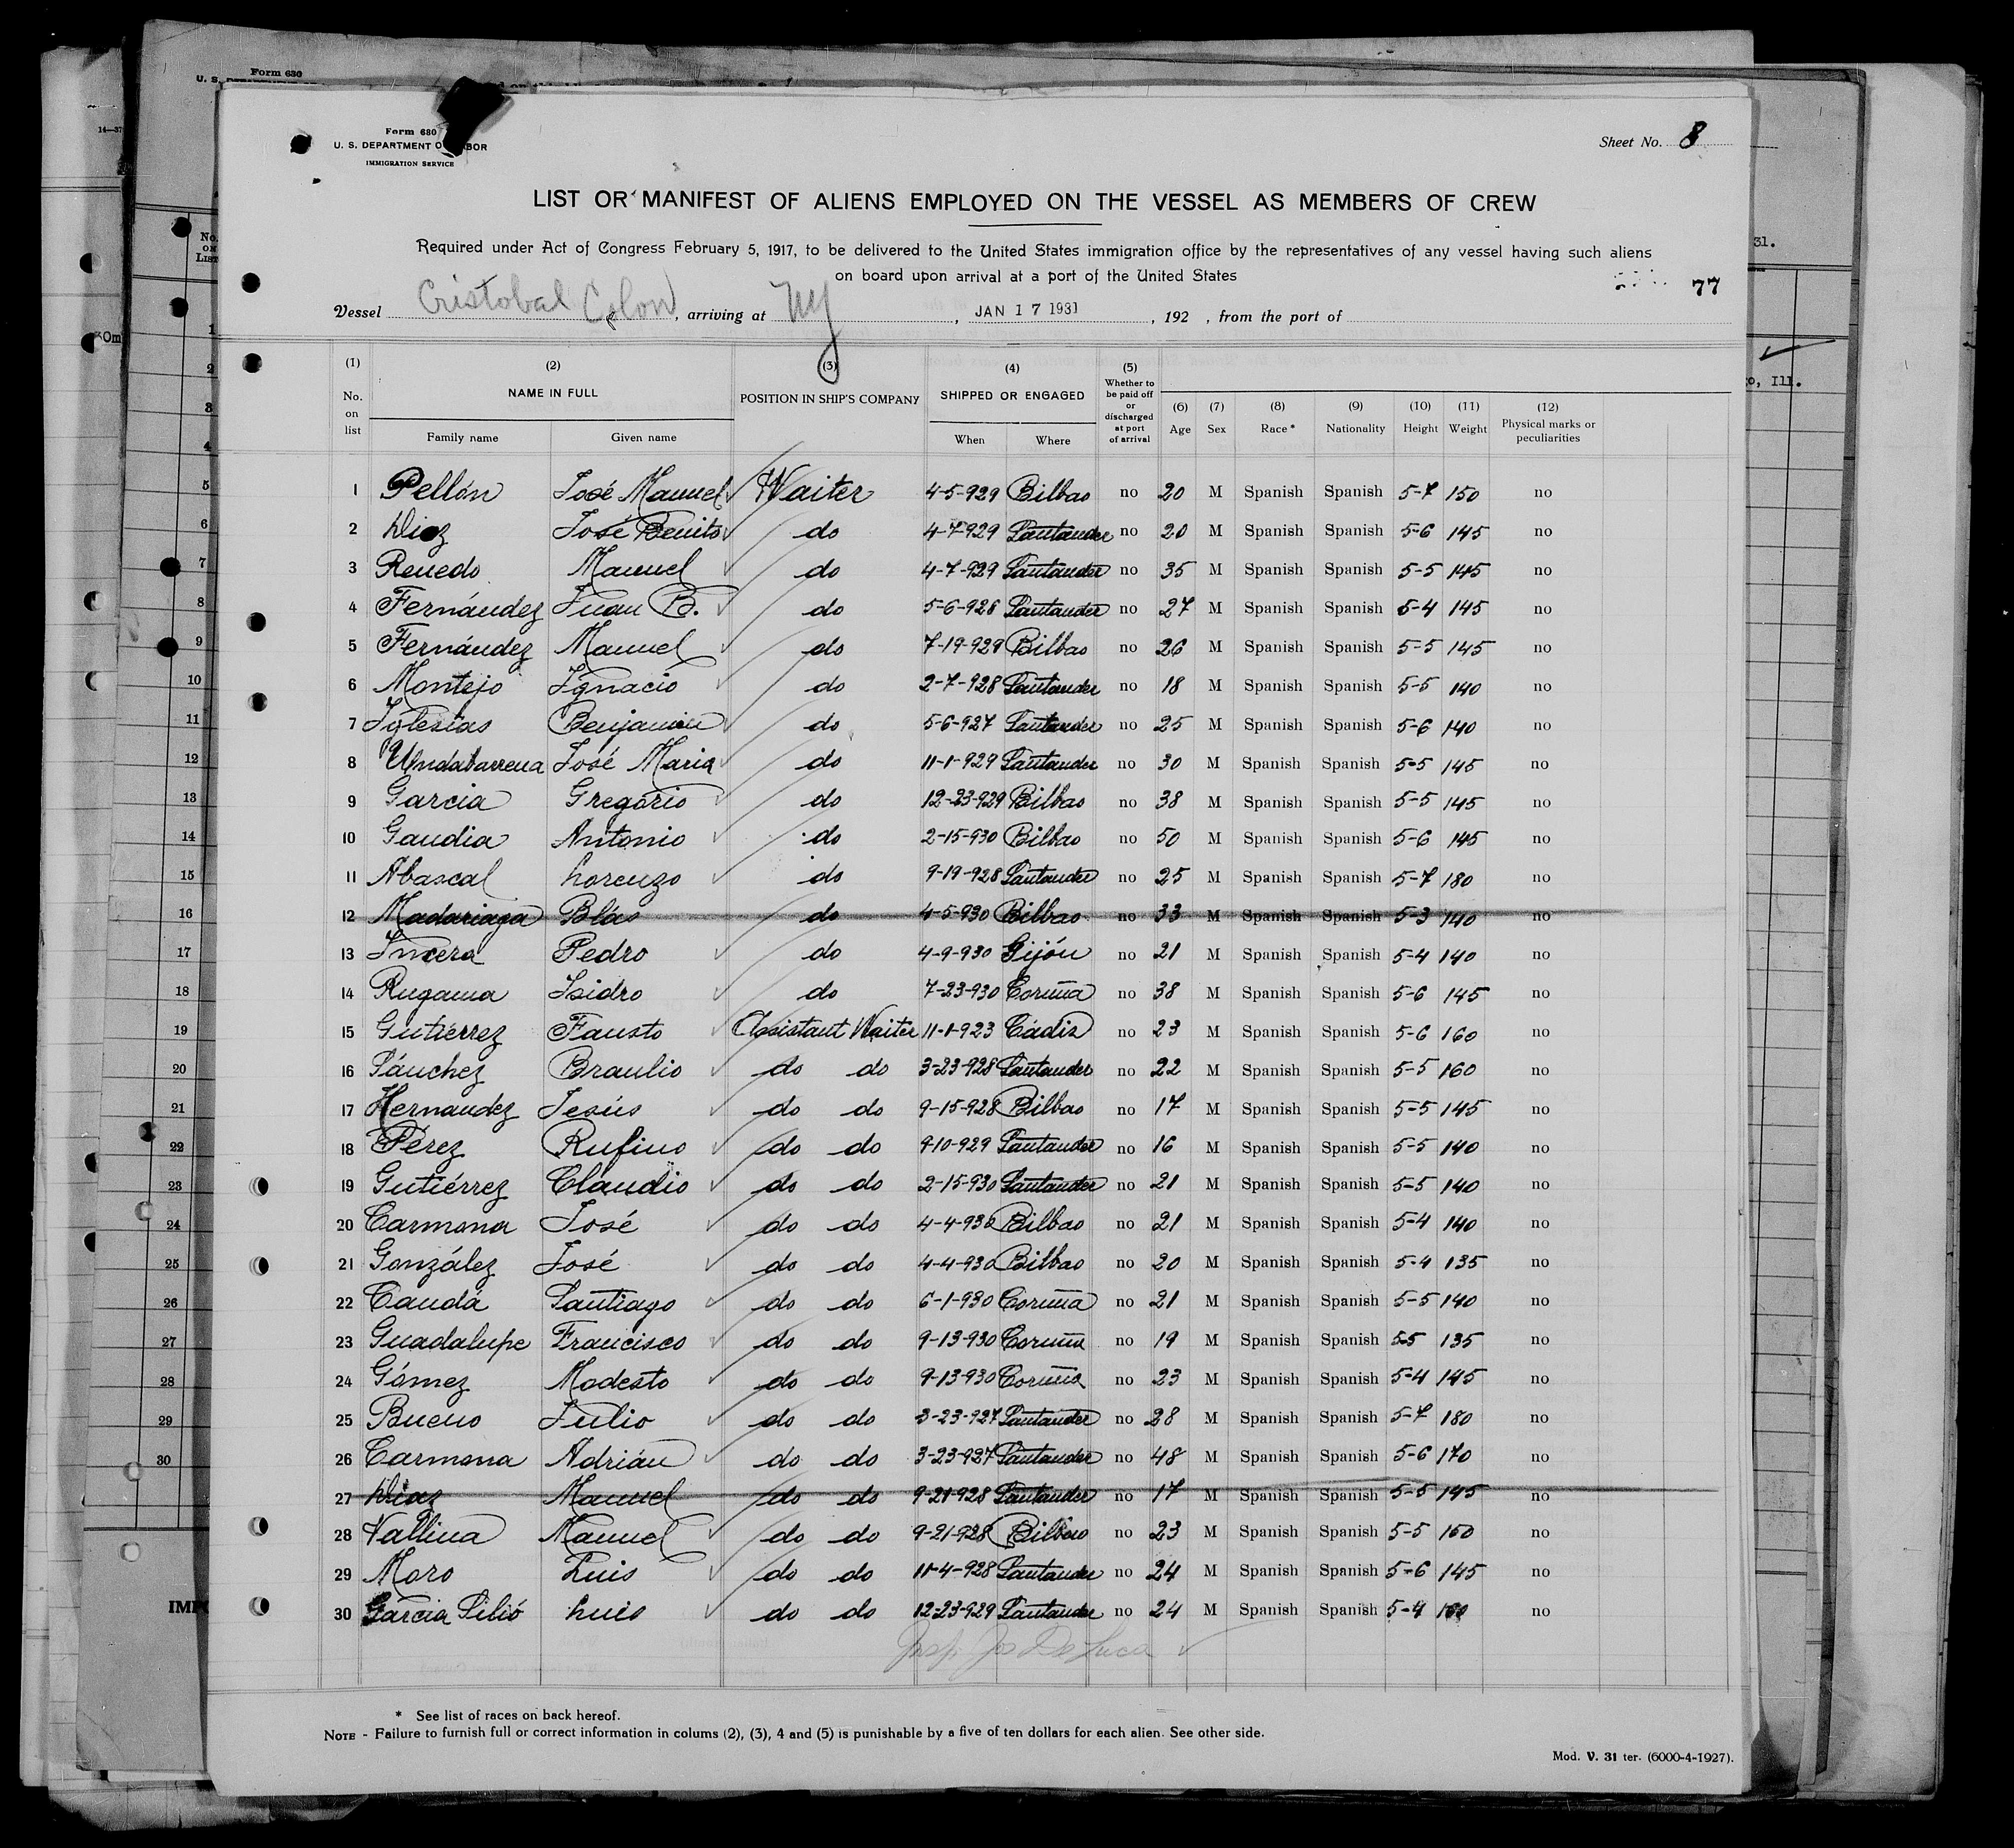 Form 630
14—37
Form 680
U. S. DEPARTMENT O BOR
IMMIGRATION SERVICE
Sheet No. 8
LIST OR MANIFEST OF ALIENS EMPLOYED ON THE VESSEL AS MEMBERS OF CREW
Required under Act of Congress February 5, 1917, to be delivered to the United States immigration office by the representatives of any vessel having such aliens
on board upon arrival at a port of the United States
77
Vessel Cristobal Colon, arriving at NY, JAN 17 1931, 192 , from the port of
(1) (2) (3) (4) (5)
No. on list NAME IN FULL POSITION IN SHIP'S COMPANY SHIPPED OR ENGAGED Whether to be paid off or discharged at port of arrival (6) Age (7) Sex (8) Race * (9) Nationality (10) Height (11) Weight (12) Physical marks or peculiarities
Family name Given name When Where
1 Pellón José Manuel Waiter 4-5-929 Bilbao no 20 M Spanish Spanish 5-7 150 no
2 Diez José Benito do 4-7-929 Santander no 20 M Spanish Spanish 5-6 145 no
3 Renedo Manuel do 4-7-929 Santander no 35 M Spanish Spanish 5-5 145 no
4 Fernández Juan B. do 5-6-928 Santander no 27 M Spanish Spanish 5-4 145 no
5 Fernández Manuel do 7-19-929 Bilbao no 26 M Spanish Spanish 5-5 145 no
6 Montejo Ignacio do 2-7-928 Santander no 18 M Spanish Spanish 5-5 140 no
7 Iglesias Benjamin do 5-6-927 Santander no 25 M Spanish Spanish 5-6 140 no
8 Undabarrena José Maria do 11-1-929 Santander no 30 M Spanish Spanish 5-5 145 no
9 Garcia Gregorio do 12-23-929 Bilbao no 38 M Spanish Spanish 5-5 145 no
10 Gaudia Antonio do 2-15-930 Bilbao no 50 M Spanish Spanish 5-6 145 no
11 Abascal Lorenzo do 9-19-928 Santander no 25 M Spanish Spanish 5-7 180 no
12 Madariaga Blás do 4-5-930 Bilbao no 33 M Spanish Spanish 5-3 140 no
13 Incera Pedro do 4-9-930 Gijón no 21 M Spanish Spanish 5-4 140 no
14 Rugama Isidro do 7-23-930 Coruña no 38 M Spanish Spanish 5-6 145 no
15 Gutiérrez Fausto Assistant Waiter 11-1-923 Cádiz no 23 M Spanish Spanish 5-6 160 no
16 Sánchez Braulio do do 3-23-928 Santander no 22 M Spanish Spanish 5-5 160 no
17 Hernandez Jesús do do 9-15-928 Bilbao no 17 M Spanish Spanish 5-5 145 no
18 Pérez Rufino do do 9-10-929 Santander no 16 M Spanish Spanish 5-5 140 no
19 Gutiérrez Claudio do do 2-15-930 Santander no 21 M Spanish Spanish 5-5 140 no
20 Carmona José do do 4-4-930 Bilbao no 21 M Spanish Spanish 5-4 140 no
21 González José do do 4-4-930 Bilbao no 20 M Spanish Spanish 5-4 135 no
22 Caudá Santiago do do 6-1-930 Coruña no 21 M Spanish Spanish 5-5 140 no
23 Guadalupe Francisco do do 9-13-930 Coruña no 19 M Spanish Spanish 5-5 135 no
24 Gómez Modesto do do 9-13-930 Coruña no 23 M Spanish Spanish 5-4 145 no
25 Bueno Julio do do 3-23-927 Santander no 28 M Spanish Spanish 5-7 180 no
26 Carmona Adrián do do 3-23-927 Santander no 48 M Spanish Spanish 5-6 170 no
27 Diaz Manuel do do 9-21-928 Santander no 17 M Spanish Spanish 5-5 145 no
28 Vallina Manuel do do 9-21-928 Bilbao no 23 M Spanish Spanish 5-5 150 no
29 Moro Luis do do 11-4-928 Santander no 24 M Spanish Spanish 5-6 145 no
30 Garcia Silió Luis do do 12-23-929 Santander no 24 M Spanish Spanish 5-4 no
Insp. Jos De Luca
* See list of races on back hereof.
NOTE - Failure to furnish full or correct information in colums (2), (3), 4 and (5) is punishable by a five of ten dollars for each alien. See other side.
Mod. V. 31 ter. (6000-4-1927).